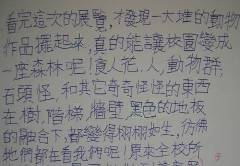 看完這次的展覽，才發現一大堆的動物
作品擺起來，真的能讓校園變成
一座森林呢！食人花、人、動物群、
石頭怪，和其它奇奇怪怪的東西
在樹、階梯、牆壁、黑色的地板
的融合下，都變得栩栩如生，彷彿
牠們都在看我們呢！原來全校所